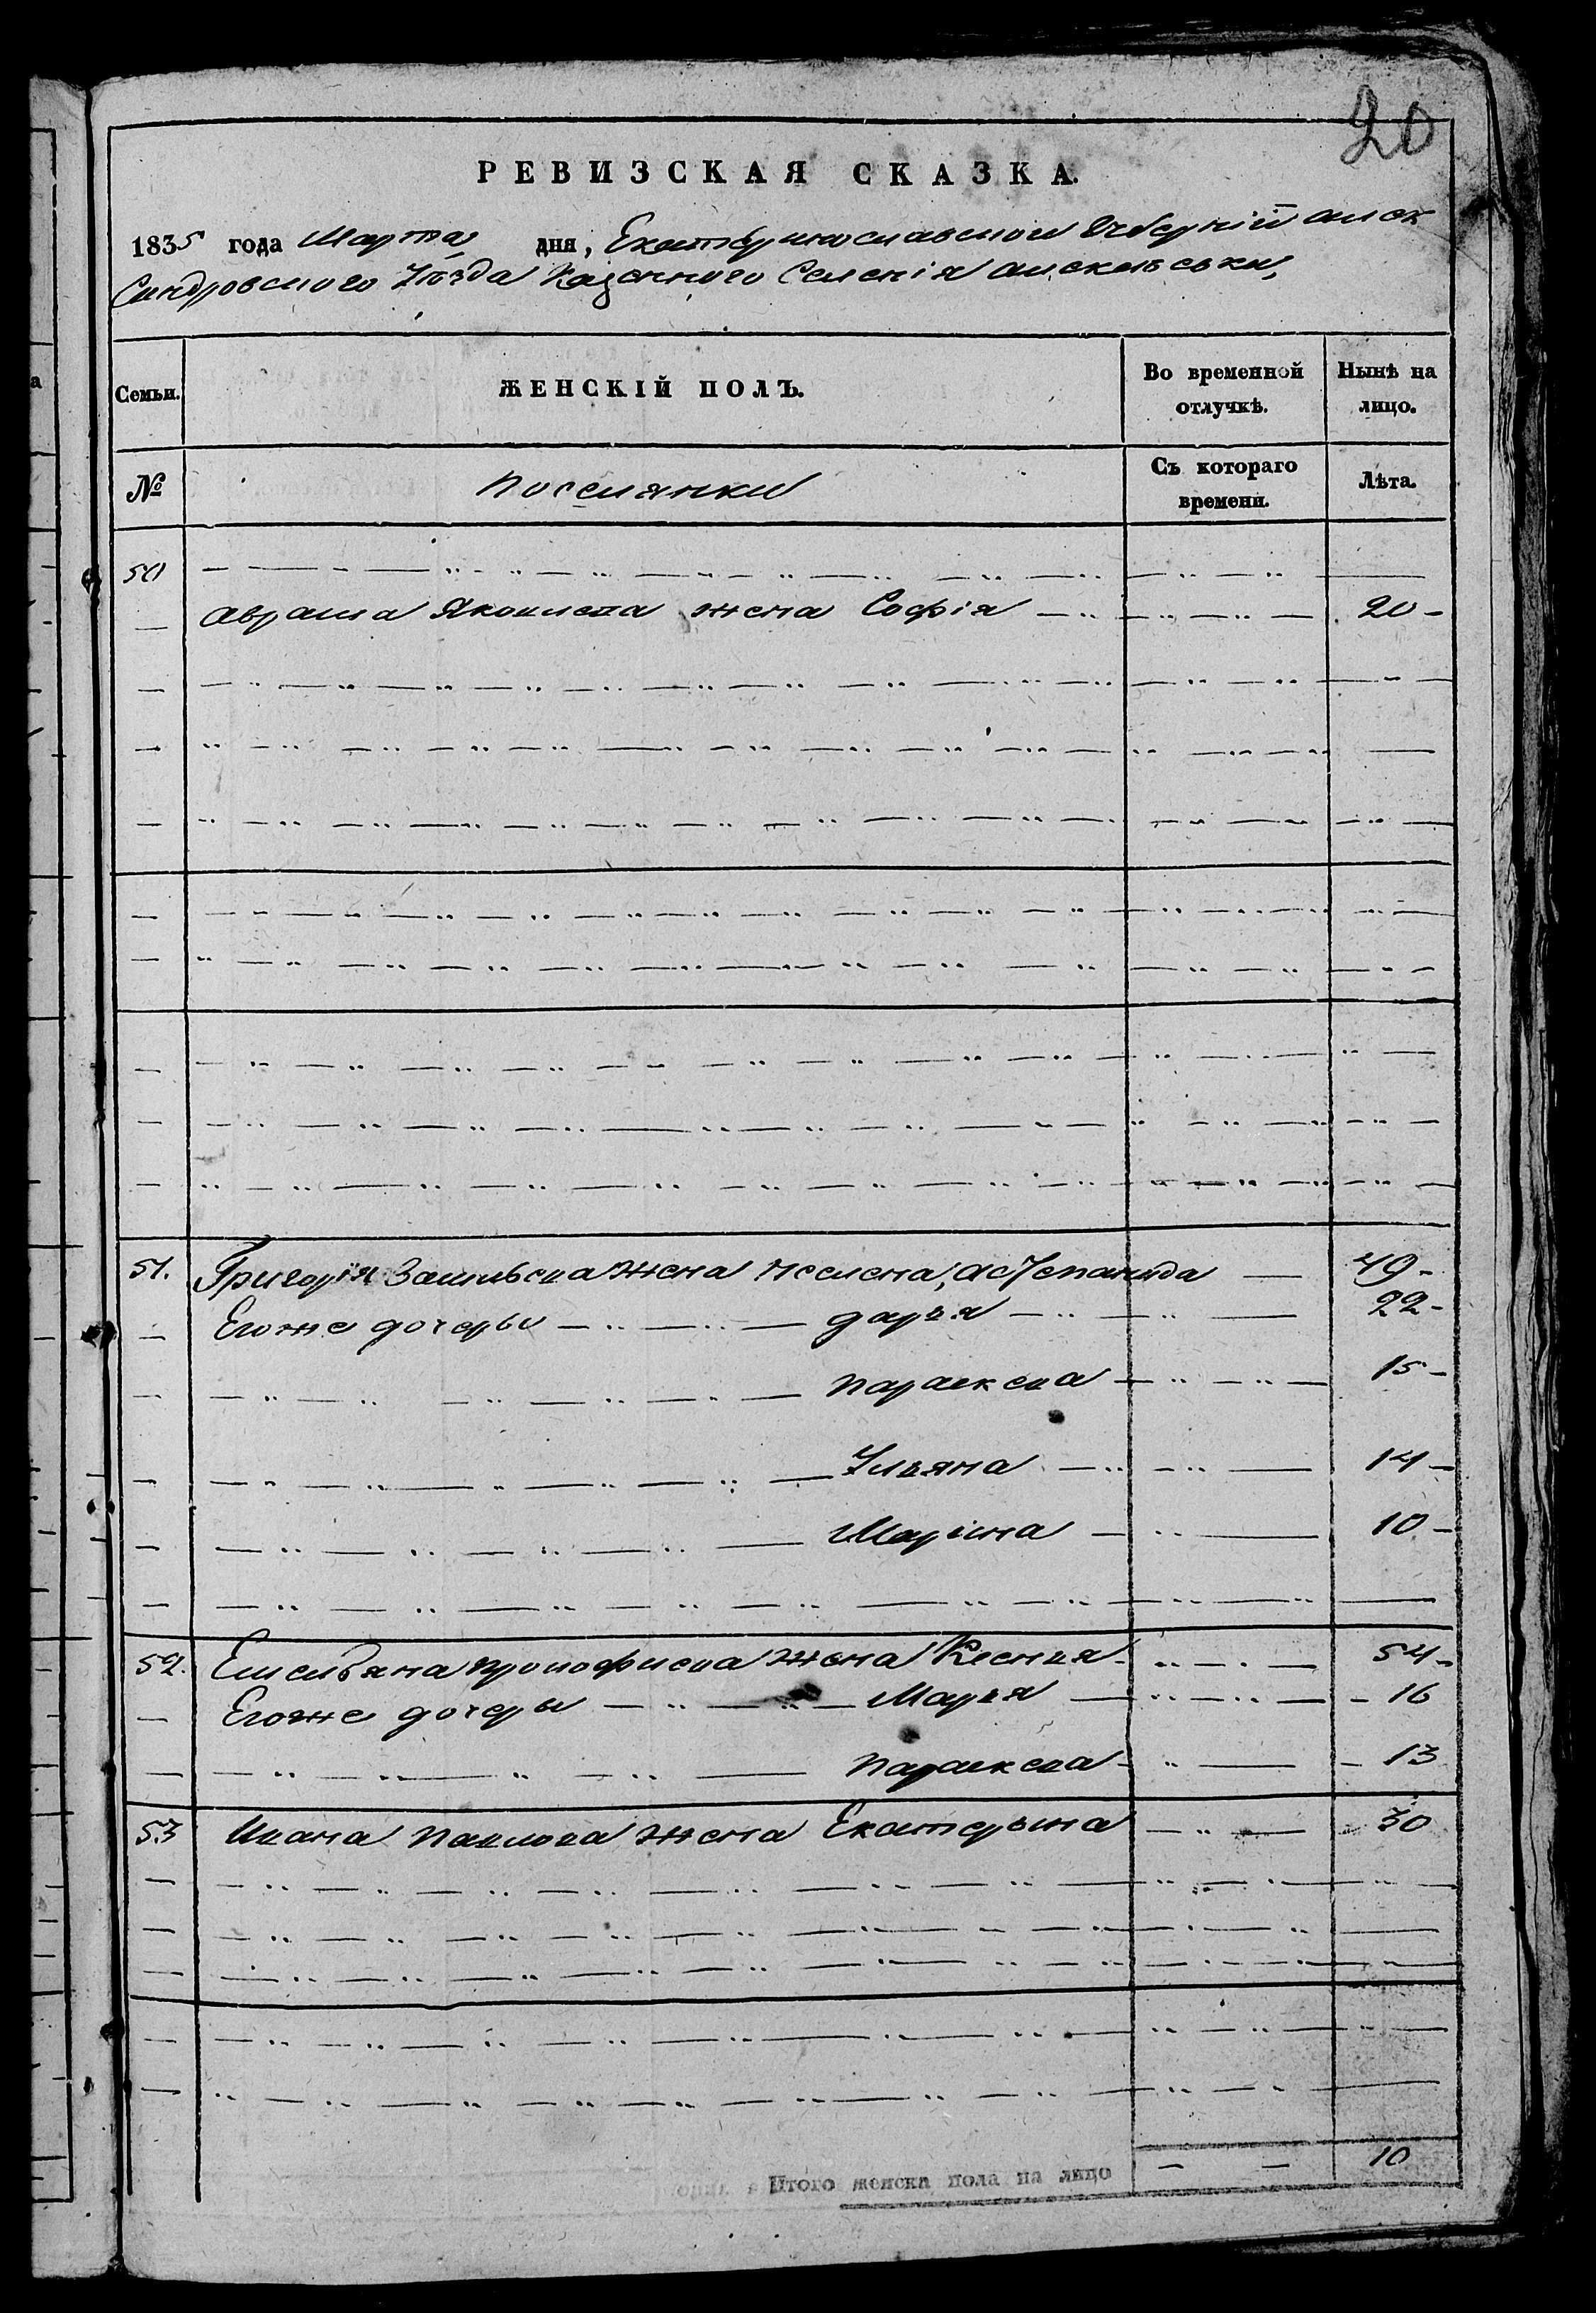 20
РЕВИЗСКАЯ СКАЗКА.
1835 года Марта дня, Екатеринославской Губерніи алек
Сандровского Уѣзда Казенного Селенія
Семьи. ЖЕНСКІЙ ПОЛЪ. Во временной отлучкѣ. Нынѣ на лицо.
№ поселянки Съ котораго времени. Лѣта.
50
Аврама Яковлева жена Софія 20
51. Григорія Васильева жена 49
Егоже дочеры дарья 22
параскева 15
Ульяна 14
Маріна 10
52. Емельяна жена Ксения 54
Егоже дочеры Марья 16
параскева 13
53 Ивана павлова жена Екатерына 30
Итого женска пола на лицо 10